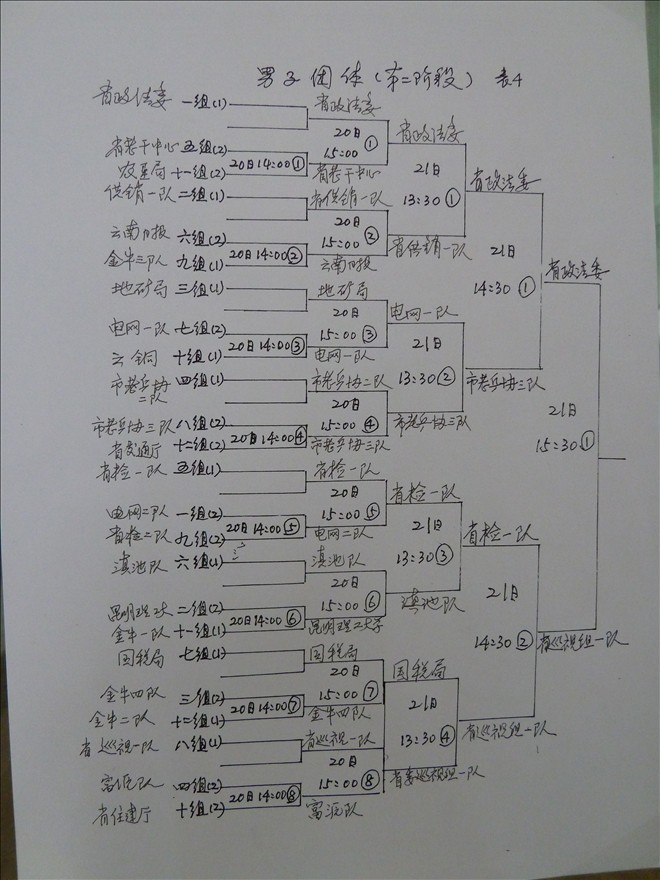 男子团体(第二阶段) 表4
省政法委 一组(1) 省政法委
20日 ① 省政法委
省老干中心 五组(2) 15:00
20日14:00① 21日
农垦局 十一组(2) 省老干中心 13:30 ① 省政法委
供销一队 二组(1) 省供销一队
20日
云南日报 六组(2) 15:00 ② 省供销一队 21日
20日14:00② 省政法委
金牛三队 九组(1) 云南日报 14:30 ①
地矿局 三组(1) 地矿局
20日 电网一队
电网一队 七组(2) 15:00 ③
20日14:00③ 21日
云铜 十组(1) 电网一队
市老兵协二队 四组(1) 市老兵协二队 13:30 ② 市老兵协三队
20日 21日
市老兵协三队 八组(2) 15:00 ④ 市老兵协三队
20日14:00④ 15:30 ①
省交通厅 十二组(2) 市老兵协三队
省检一队 五组(1) 省检一队
20日 省检一队
电网二队 一组(2) 15:00 ⑤
20日14:00⑤ 21日
省检二队 九组(2) 电网二队 省检一队
滇池队 六组(1) 滇池队 13:30 ③
20日 21日
昆明理工大 二组(2) 15:00 ⑥ 滇池队
20日14:00⑥
金牛一队 十一组(1) 昆明理工大学 14:30 ② 省巡视组一队
国税局 七组(1) 国税局
20日 国税局
金牛四队 三组(2) 15:00 ⑦
20日14:00⑦ 21日
金牛二队 十二组(1) 金牛四队
省巡视一队 八组(1) 省巡视一队 13:30 ④ 省巡视组一队
20日
富滇队 四组(2) 15:00 ⑧ 省委巡视组一队
20日14:00⑧
省住建厅 十组(2) 富滇队